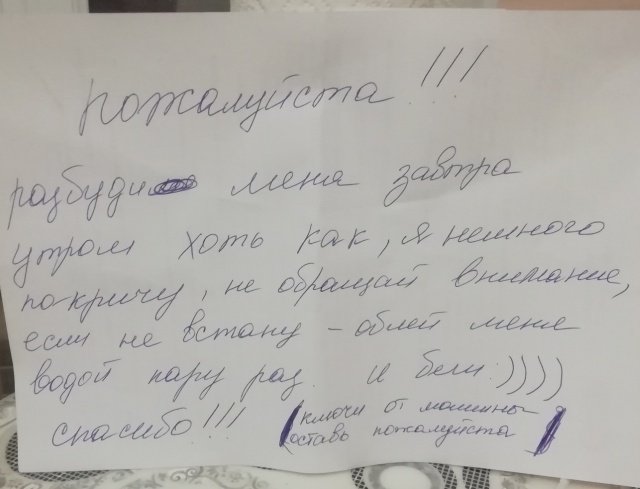 пожалуйста !!!
разбуди меня завтра
утром хоть как, я немного
покричу, не обращай внимание,
если не встану - облей меня
водой пару раз. и беги :))))
спасибо!!!
(ключи от машины
оставь пожалуйста)